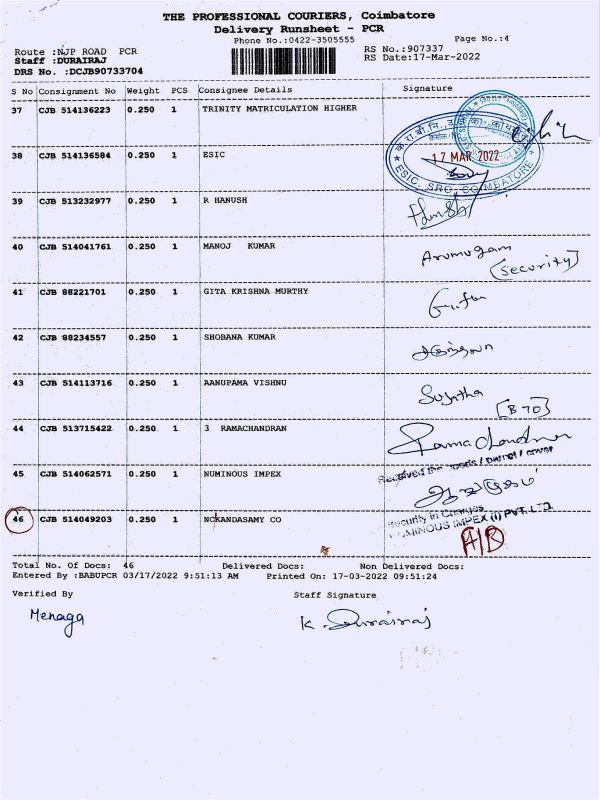 THE PROFESSIONAL COURIERS, Coimbatore
Delivery Runsheet - PCR
Phone No.:0422-3505555 Page No.:4
Route :NJP ROAD PCR RS No.:907337
Staff :DURAIRAJ RS Date:17-Mar-2022
DRS No. :DCJB90733704
S No Consignment No Weight PCS Consignee Details Signature
37 CJB 514136223 0.250 1 TRINITY MATRICULATION HIGHER
38 CJB 514136584 0.250 1 ESIC
17 MAR 2022
ESIC, SRO, COIMBATORE
39 CJB 513232977 0.250 1 R HANUSH
40 CJB 514041761 0.250 1 MANOJ KUMAR Arumugam
(Security)
41 CJB 88221701 0.250 1 GITA KRISHNA MURTHY
42 CJB 88234557 0.250 1 SHOBANA KUMAR
43 CJB 514113716 0.250 1 AANUPAMA VISHNU Sujatha
[B 70]
44 CJB 513715422 0.250 1 3 RAMACHANDRAN Ramachandran
Received the goods /
45 CJB 514062571 0.250 1 NUMINOUS IMPEX ஆறுமுகம்
Security in Charge
46 CJB 514049203 0.250 1 NCKANDASAMY CO NUMINOUS IMPEX (I) PVT. LTD.
A/B
Total No. Of Docs: 46 Delivered Docs: Non Delivered Docs:
Entered By :BABUPCR 03/17/2022 9:51:13 AM Printed On: 17-03-2022 09:51:24
Verified By Staff Signature
Menaga K. Durairaj